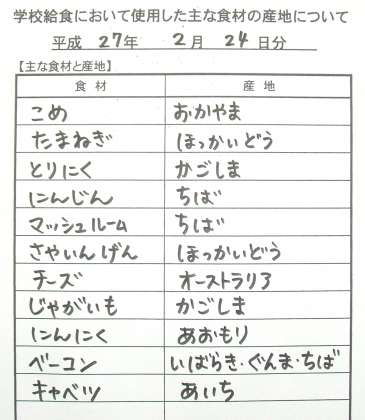 学校給食において使用した主な食材の産地について
平成 27年 2月 24日分
【主な食材と産地】
食材 産地
こめ おかやま
たまねぎ ほっかいどう
とりにく かごしま
にんじん ちば
マッシュルーム ちば
さやいんげん ほっかいどう
チーズ オーストラリア
じゃがいも かごしま
にんにく あおもり
ベーコン いばらき・ぐんま・ちば
キャベツ あいち